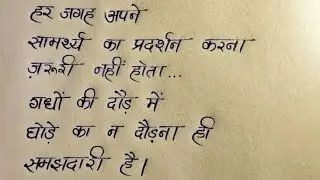 हर जगह अपने
सामर्थ्य का प्रदर्शन करना
ज़रूरी नहीं होता...
गधों की दौड़ में
घोड़े का न दौड़ना ही
समझदारी है।